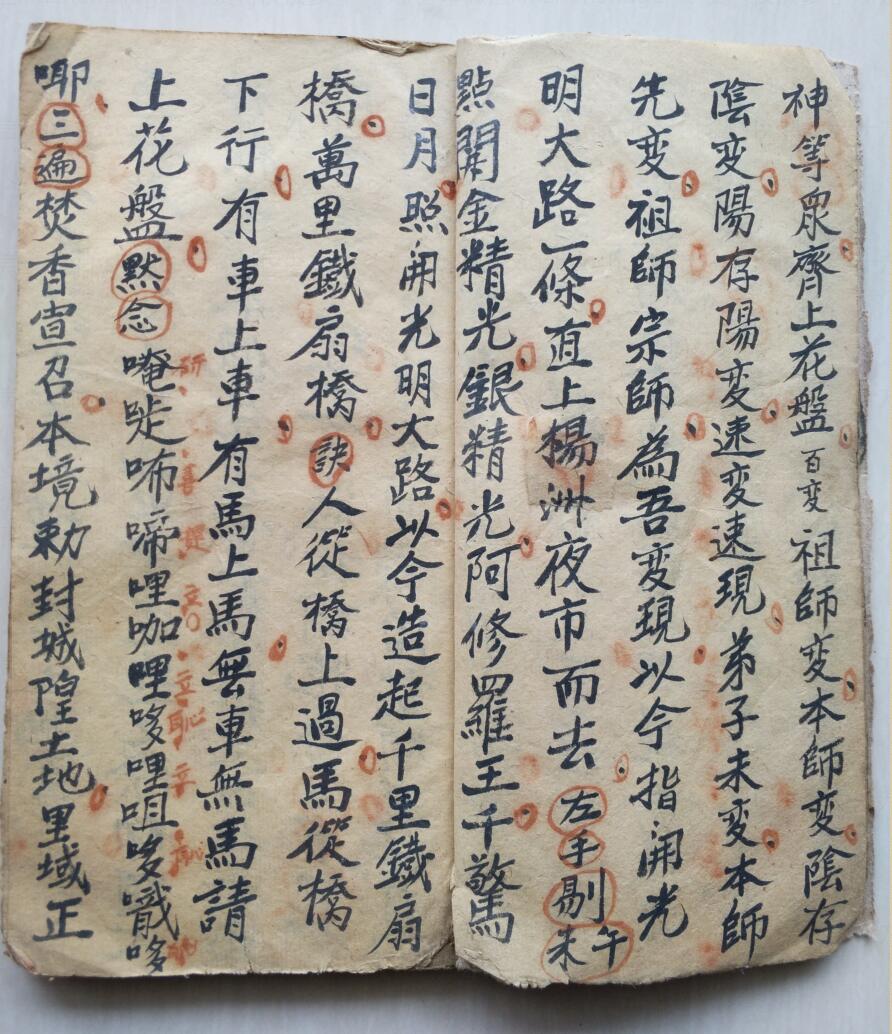 神等眾齊上花盤百变祖師变本師变陰存
陰变陽存陽变速变速現弟子未变本師
先变祖師宗師為吾变現以今指開光
明大路一條直上楊洲夜市而去左手剔午未
點開金精光銀精光阿修羅王千驚
日月照開光明大路以今造起千里鐵扇
橋萬里鐵扇橋訣人從橋上過馬從橋
下行有車上車有馬上馬無車無馬請
上花盤默念唵㗌咘啼哩咖哩哆哩咀哆囉哆
唧三遍焚香宣召本境勅封城隍土地里域正